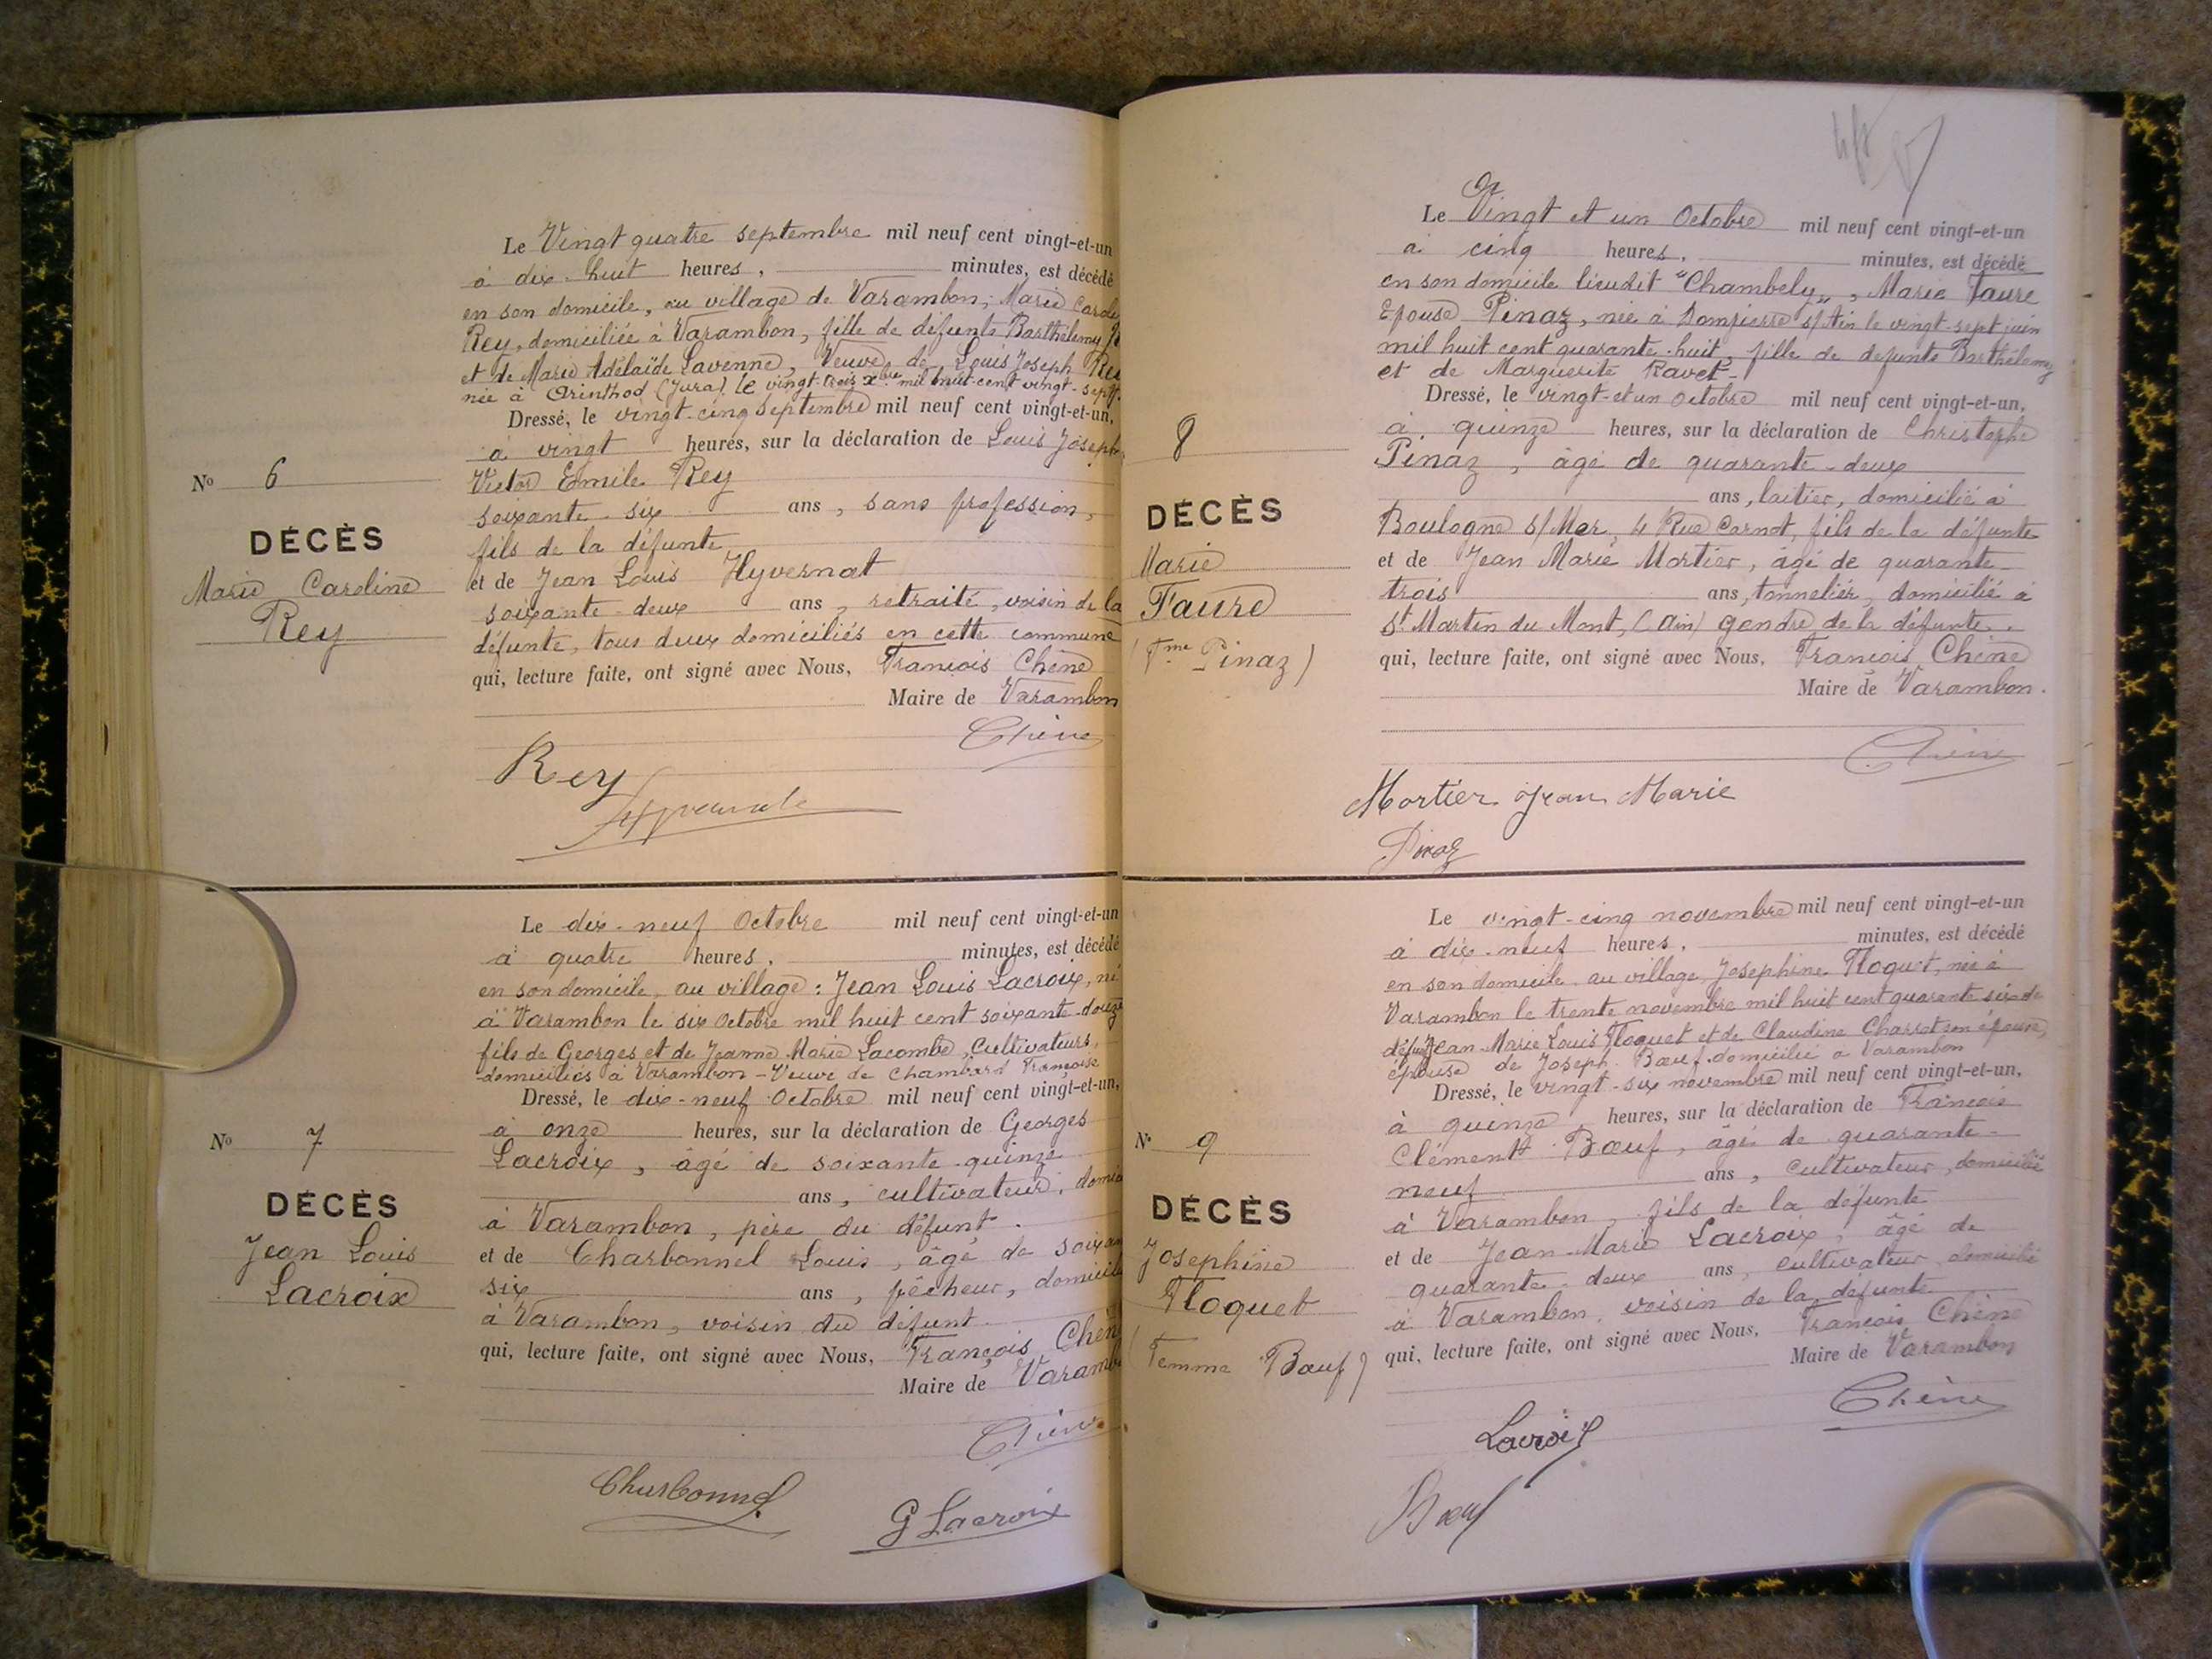 Le Vingt quatre septembre mil neuf cent vingt-et-un
à dix-huit heures, minutes, est décédé
en son domicile, au village de Varambon, Marie
Rey, domiciliée à Varambon, fille de défunts Barthélemy
et de Marie Adélaïde Lavenne, Veuve de Louis Joseph
née à Arinthod (Jura), le vingt-trois xbre mil huit-cent vingt-sept.
Dressé, le vingt-cinq septembre mil neuf cent vingt-et-un,
à vingt heures, sur la déclaration de Louis Joseph
Victor Emile Rey
soixante-six ans, sans profession,
fils de la défunte
et de Jean Louis Hyvernat
soixante-deux ans, retraité, voisin de la
défunte, tous deux domiciliés en cette commune
qui, lecture faite, ont signé avec Nous, François Chêne
Maire de Varambon
Chêne
Rey
Hyvernat
No 6
DÉCÈS
Marie Caroline
Rey
Le dix-neuf Octobre mil neuf cent vingt-et-un
à quatre heures, minutes, est décédé
en son domicile, au village : Jean Louis Lacroix, né
à Varambon le six Octobre mil huit cent soixante-douze
fils de Georges et de Jeanne Marie Lacombe, Cultivateurs,
domiciliés à Varambon - Veuve de Chambard Françoise
Dressé, le dix-neuf Octobre mil neuf cent vingt-et-un,
à onze heures, sur la déclaration de Georges
Lacroix, âgé de soixante-quinze
ans, cultivateur,
à Varambon, père du défunt.
et de Charbonnel Louis, âgé de
six ans, pêcheur,
à Varambon, voisin du défunt
qui, lecture faite, ont signé avec Nous, François
Maire de
Chêne
Charbonnel
G Lacroix
No 7
DÉCÈS
Jean Louis
Lacroix
Le Vingt et un Octobre mil neuf cent vingt-et-un
à cinq heures, minutes, est décédé
en son domicile lieudit "Chambely", Marie Faure
Epouse Pinaz, née à Dompierre s/Ain le vingt-sept juin
mil huit cent quarante-huit, fille de defunts Barthélemy
et de Marguerite Ravet-
Dressé, le vingt-et un Octobre mil neuf cent vingt-et-un,
à quinze heures, sur la déclaration de Christophe
Pinaz, âgé de quarante-deux
ans, laitier, domicilié à
Boulogne s/Mer, 4 Rue Carnot, fils de la défunte
et de Jean Marie Mortier, âgé de quarante-
trois ans, tonnelier, domicilié à
St Martin du Mont, (Ain) gendre de la défunte.
qui, lecture faite, ont signé avec Nous, François Chêne
Maire de Varambon.
Chêne
Mortier Jean Marie
Pinaz
8
DÉCÈS
Marie
Faure
(Fme Pinaz)
Le vingt-cinq novembre mil neuf cent vingt-et-un
à dix-neuf heures, minutes, est décédé
en son domicile au village, Josephine Floquet, née à
Varambon le trente novembre mil huit cent quarante six de
défunts Jean-Marie Louis Floquet et de Claudine Charrot son épouse,
épouse de Joseph Bœuf domicilié à Varambon
Dressé, le vingt-six novembre mil neuf cent vingt-et-un,
à quinze heures, sur la déclaration de François
Clément Bœuf, âgé de quarante-
neuf ans, cultivateur, domicilié
à Varambon, fils de la défunte
et de Jean-Marie Lacroix, âgé de
quarante-deux ans, cultivateur domicilié
à Varambon, voisin de la défunte
qui, lecture faite, ont signé avec Nous, François Chêne
Maire de Varambon
Chêne
Lacroix
Bœuf
No 9
DÉCÈS
Josephine
Floquet
(Femme Bœuf)